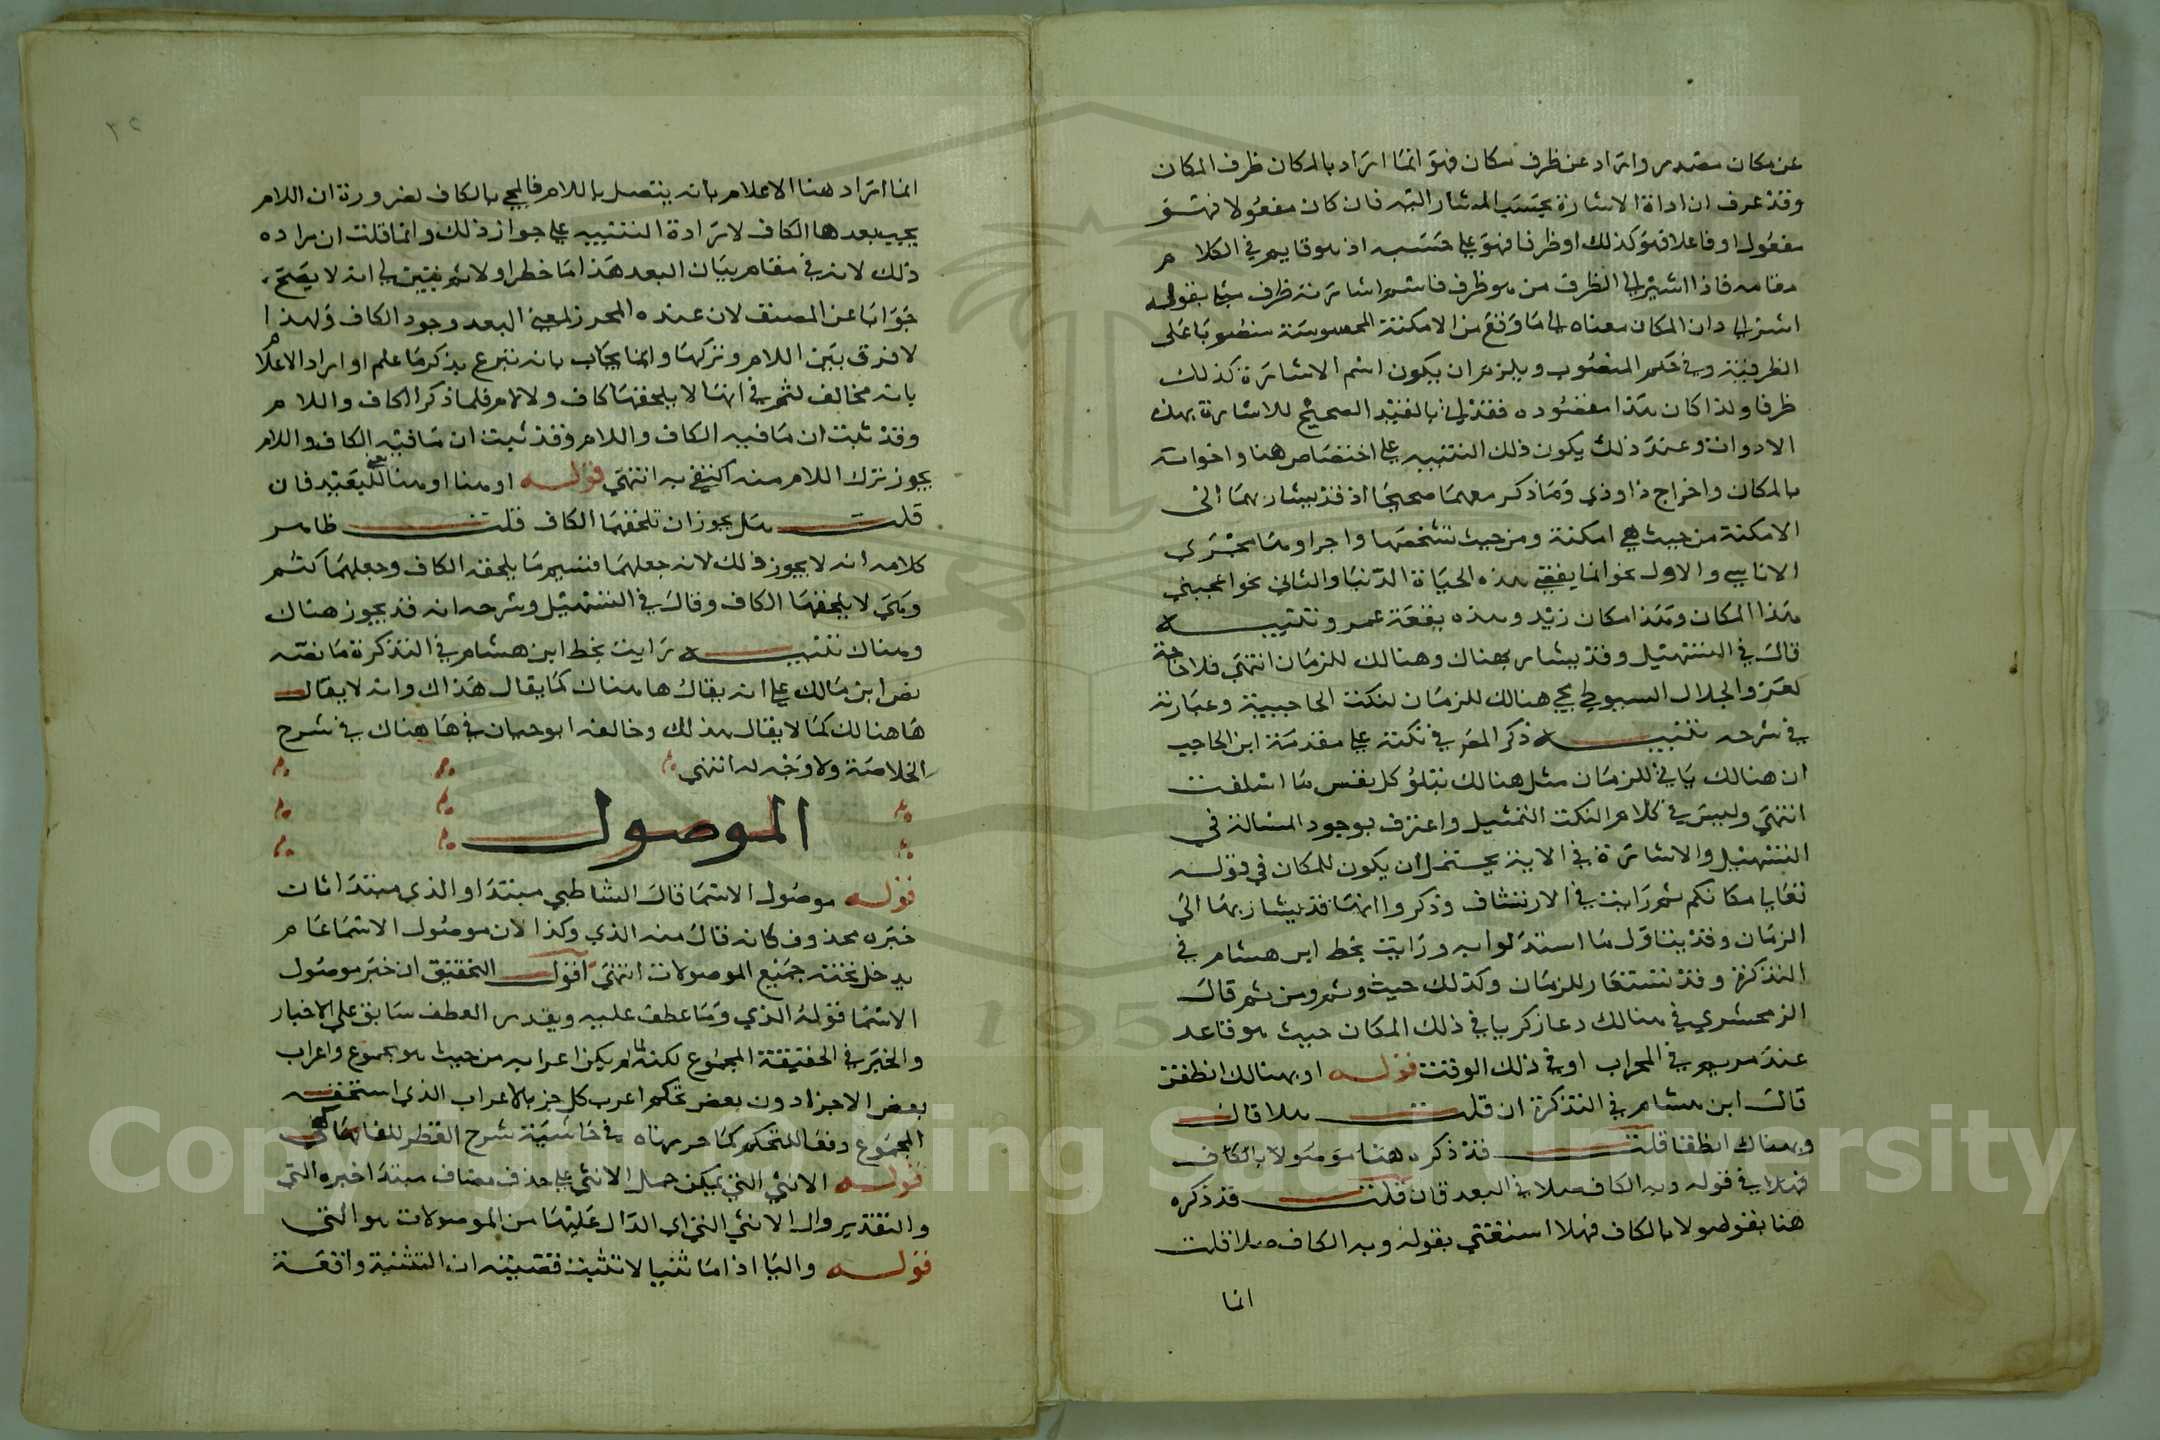 عن مكان مقدر واراد عن ظرف مكان فهو انما اراد بالمكان ظرف المكان
وقد عرف ان اداة الاشارة بحسب المشار اليه فان كان مفعولا فهو
مفعول او فاعلا فهو كذلك او ظرفا فهو على حسبه اذ هو قايم في الكلام
مقامه فاذا اشير الى الظرف من هو ظرف فاسم اشارته ظرف بقوله
اشر الى دان المكان معناه الى ما وقع من الامكنة المحسوسة منصوبا على
الظرفية وفي حكم المنصوب ويلزم ان يكون اسم الاشارة كذلك
ظرفا ولذا كان هذا مقصوده فقد اتى بالقيد الصحيح للاشارة بهذه
الادوات وعند ذلك يكون ذلك التنبيه على اختصاص هنا واخواته
بالمكان واخراج ذا وذي وما ذكر معهما صحيحا اذ قد يشار بهما الى
الامكنة من حيث هي امكنة ومن حيث تشخصها واجراوها مجرى
الاناسي والاول نحو انما يقضي هذه الحياة الدنيا والثاني نحو اعجبني
هذا المكان وهذا مكان زيد وهذه بقعة عمرو تنبيه
قال في التسهيل وقد يشار بهناك وهنالك للزمان انتهى فلا حاجة
لعزو الجلال السيوطي مجي هنالك للزمان لنكت الحاجبية وعبارته
في شرحه تنبيه ذكر المص في نكته على مقدمة ابن الحاجب
ان هنالك ياتي للزمان مثل هنالك تبلو كل نفس ما اسلفت
انتهى وليس في كلام النكت التمثيل واعترف بوجود المسالة في
التسهيل والاشارة في الاية يحتمل ان يكون للمكان في قوله
تعالى مكانكم ثم رايت في الارتشاف وذكروا انها قد يشار بها الى
الزمان وقد يتاول ما استدلوا به ورايت بخط ابن هشام في
التذكرة وقد تستعار للزمان وكذلك حيث وثم ومن ثم قال
الزمخشري في هنالك دعا زكريا في ذلك المكان حيث هو قاعد
عند مريم في المحراب او في ذلك الوقت قوله او بهنالك انطقن
قال ابن هشام في التذكرة ان قلت هلا قال
وبهناك انطقا قلت قد ذكره هنا موصولا بالكاف
فهلا في قوله وبه الكاف صلا في البعد فان قلت قد ذكره
هنا بقو لصولا بالكاف فهلا استغنى بقوله وبه الكاف صلا قلت
انما
٣٢
انما اراد هنا الاعلام بانه يتصل باللام فالمجي بالكاف لضرورة ان اللام
يجيب بعدها الكاف لارادة التنبيه على جواز ذلك وانما قلت ان مراده
ذلك لانه في مقام بيان البعد هذا ما خطر اولا ثم تبين لي انه لا يصح
جوابا عن المصنف لان عنده المحرز لمعنى البعد وجود الكاف ولهذا
لا فرق بين اللام وتركها وانما يجاب بانه تبرع بذكر ما علم او اراد الاعلام
بانه مخالف لثم في انها لا يلحقها كاف ولا لام فلما ذكر الكاف واللام
وقد ثبت ان ما فيه الكاف واللام وقد ثبت ان ما فيه الكاف واللام
يجوز ترك اللام منه اكتفى به انتهى قوله او هنا او هنا للبعيد فان
قلت هل يجوز ان تلحقها الكاف قلت ظاهر
كلامه انه لا يجوز ذلك لانه جعلهما قسيم ما يلحقه الكاف وجعلهما كثم
وهي لا يلحقها الكاف وقال في التسهيل وشرحه انه قد يجوز هناك
وهناك تنبيه رايت بخط ابن هشام في التذكرة ما نصه
نص ابن مالك على انه يقال ها هناك كما يقال هذاك وانه لا يقال
ها هنالك كما لا يقال هذلك وخالفه ابو حيان في ها هناك في شرح
الخلاصة ولا وجه له انتهى
الموصول
قوله موصول الاسما قال الشاطبي مبتدا والذي مبتدا ثان
خبره محذوف كانه قال منه الذي وكذا لان موصول الاسما عام
يدخل تحته جميع الموصولات انتهى اقول التحقيق ان خبر موصول
الاسما قوله الذي وما عطف عليه ويقدر العطف سابق على الاخبار
والخبر في الحقيقة المجموع لكنه لما لم يكن اعرابه من حيث هو مجموع واعراب
بعض الاجزا دون بعض تحكم اعرب كل جز بالاعراب الذي استحقه
المجموع دفعا للتحكم كما حررناه في حاشية شرح القطر للفاكهاني
قوله الانثى التي يمكن حمل الانثى على حذف مضاف مبتدا خبره التي
والتقدير وال الانثى التي اي الدال عليها من الموصولات هو التي
قوله واليا اذا ما ثنيا لا تثبت قضيته ان التثنية واقعة